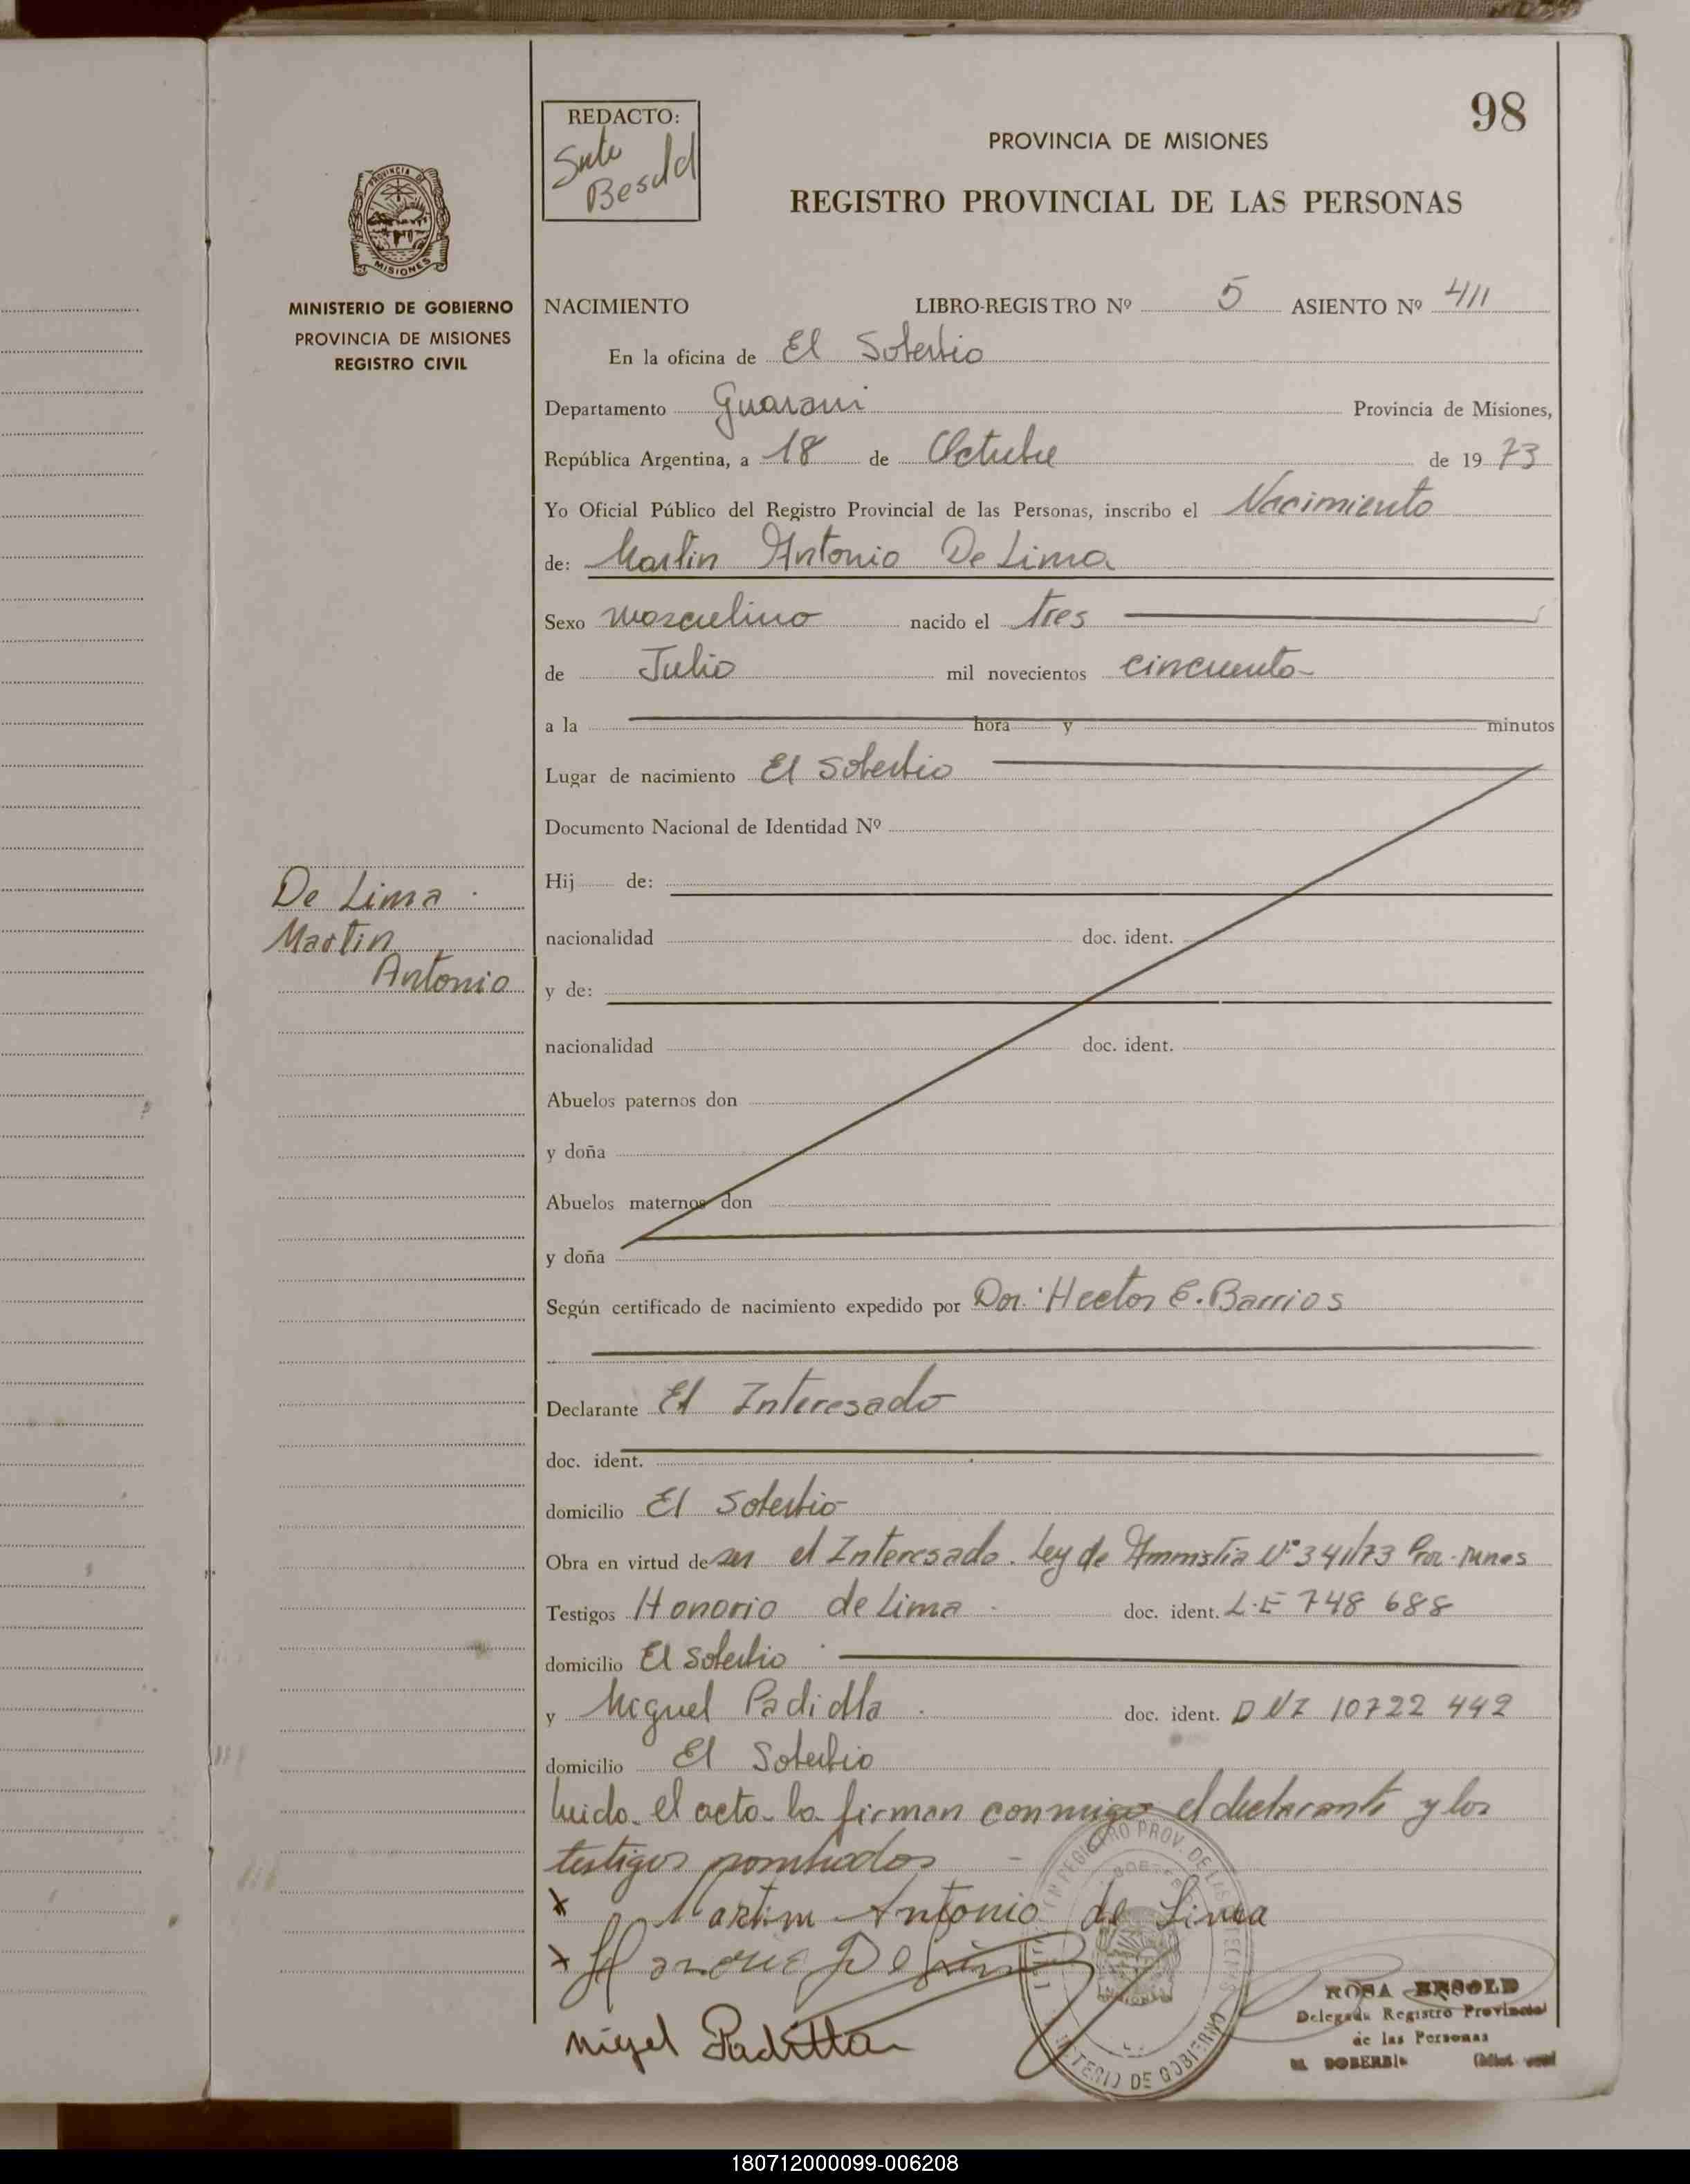 98
REDACTO:
PROVINCIA DE MISIONES
REGISTRO PROVINCIAL DE LAS PERSONAS
PROVINCIA DE
MISIONES
MINISTERIO DE GOBIERNO
PROVINCIA DE MISIONES
REGISTRO CIVIL
NACIMIENTO LIBRO-REGISTRO Nº 5 ASIENTO Nº 411
En la oficina de El Soberbio
Departamento Guarani Provincia de Misiones,
República Argentina, a 18 de Octubre de 1973
Yo Oficial Público del Registro Provincial de las Personas, inscribo el Nacimiento
de: Martin Antonio De Lima
Sexo masculino nacido el tres
de Julio mil novecientos cincuenta
a la hora y minutos
Lugar de nacimiento El Soberbio
Documento Nacional de Identidad Nº
De Lima
Martin
Antonio
Hij de:
nacionalidad doc. ident.
y de:
nacionalidad doc. ident.
Abuelos paternos don
y doña
Abuelos maternos don
y doña
Según certificado de nacimiento expedido por Dor. Hector E. Barrios
Declarante El Interesado
doc. ident.
domicilio El Soberbio
Obra en virtud de ser el Interesado. Ley de Ammistia Nº 341/73
Testigos Honorio de Lima doc. ident. L.E 748 688
domicilio El Soberbio
y Miguel Padidla doc. ident. DNI 10722 442
domicilio El Soberbio
Leida el acta la firman conmigo el declarante y los
testigos nombrados
x Martim Antonio de Lima
x
Migel Padilla
MINISTERIO DE GOBIERNO
ROSA BESOLD
Delegada Registro Provincial
de las Personas
EL SOBERBIO
180712000099-006208